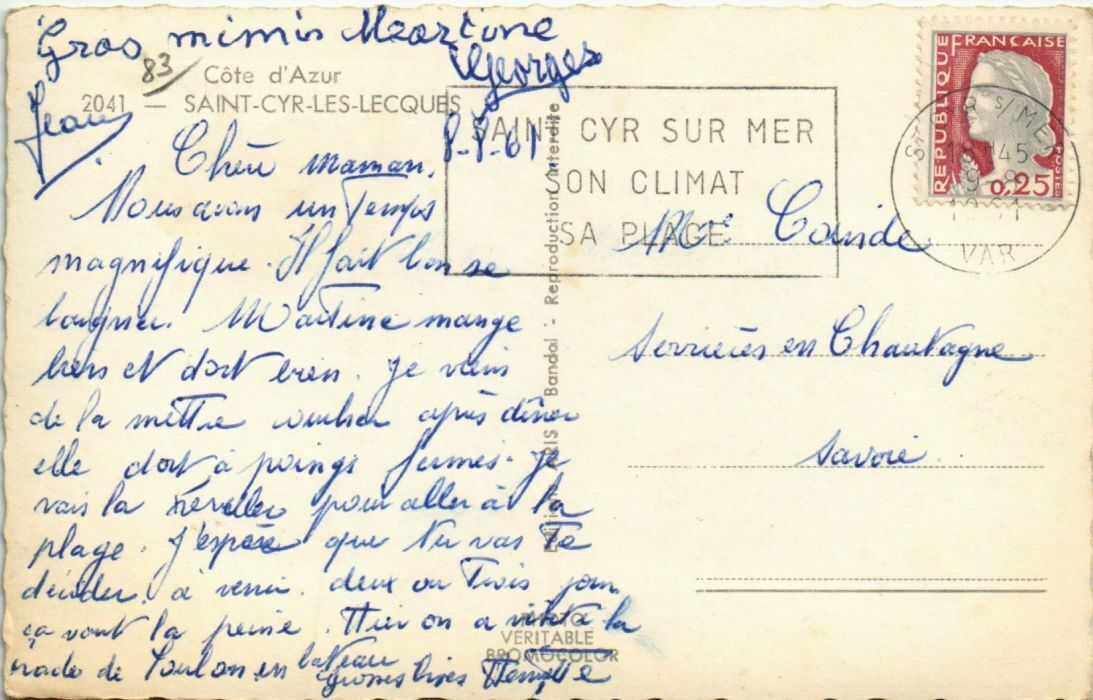 Gros mimis Martine
Georges
Jean
83
Côte d'Azur
2041 — SAINT-CYR-LES-LECQUES
8-8-61
Chère maman,
Nous avons un Temps
magnifique. Il fait bon se
baigner. Martine mange
bien et dort bien. Je viens
de la mettre coucher après dîner
elle dort à poings fermés. Je
vais la réveiller pour aller à la
plage. J'espère que tu vas te
décider à venir deux ou trois jours
ça vaut la peine. Hier on a visité la
rade de Toulon en bateau
grosses bises
RÉPUBLIQUE FRANÇAISE
POSTES
0,25
SAINT CYR SUR MER
SON CLIMAT
SA PLAGE
ST CYR S/MER
18H45
9-8
1961
VAR
Mme
Serrières en Chautagne
Savoie
Bandol - Reproduction Interdite
PHOTO
VÉRITABLE
BROMOCOLOR